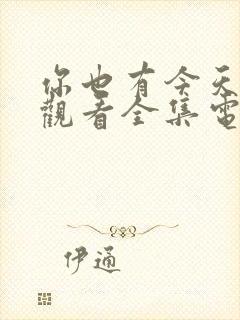 你也有今天
觀看全集電
伊通